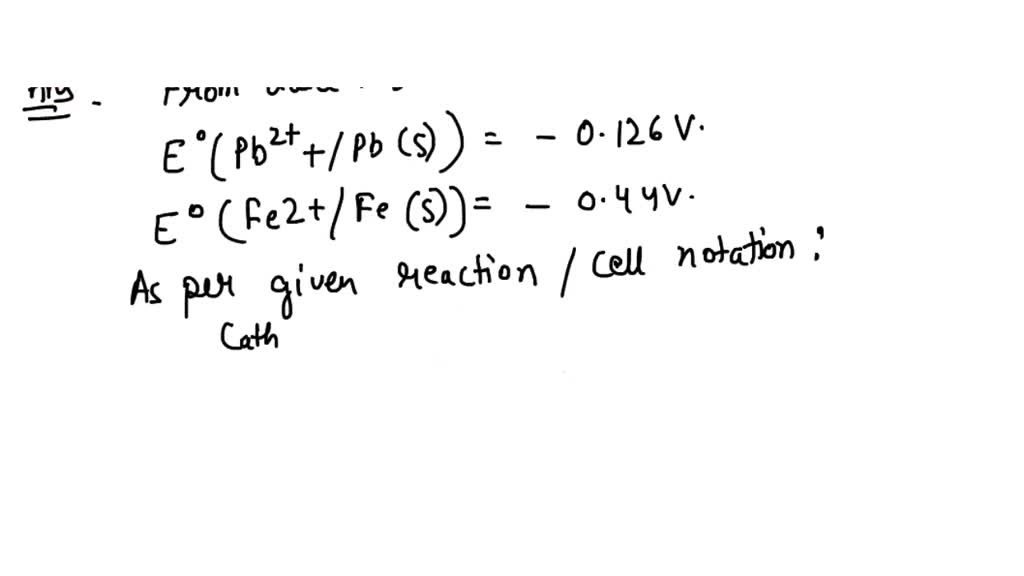 From
E°(Pb²⁺+/Pb (s)) = - 0.126 V.
E°(Fe2+/Fe (s)) = - 0.44V.
As per given reaction / cell notation :
Cath